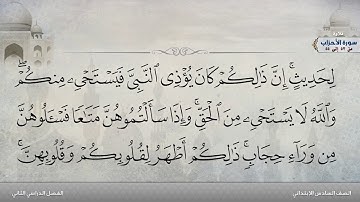 تلاوة
سورة الأحزاب
لِحَدِيثٍ ۚ إِنَّ ذَٰلِكُمْ كَانَ يُؤْذِى ٱلنَّبِىَّ فَيَسْتَحْىِۦ مِنكُمْ ۖ
وَٱللَّهُ لَا يَسْتَحْىِۦ مِنَ ٱلْحَقِّ ۚ وَإِذَا سَأَلْتُمُوهُنَّ مَتَٰعًا فَسْـَٔلُوهُنَّ
مِن وَرَآءِ حِجَابٍ ۚ ذَٰلِكُمْ أَطْهَرُ لِقُلُوبِكُمْ وَقُلُوبِهِنَّ ۚ
الصف السادس الابتدائي
الفصل الدراسي الثاني